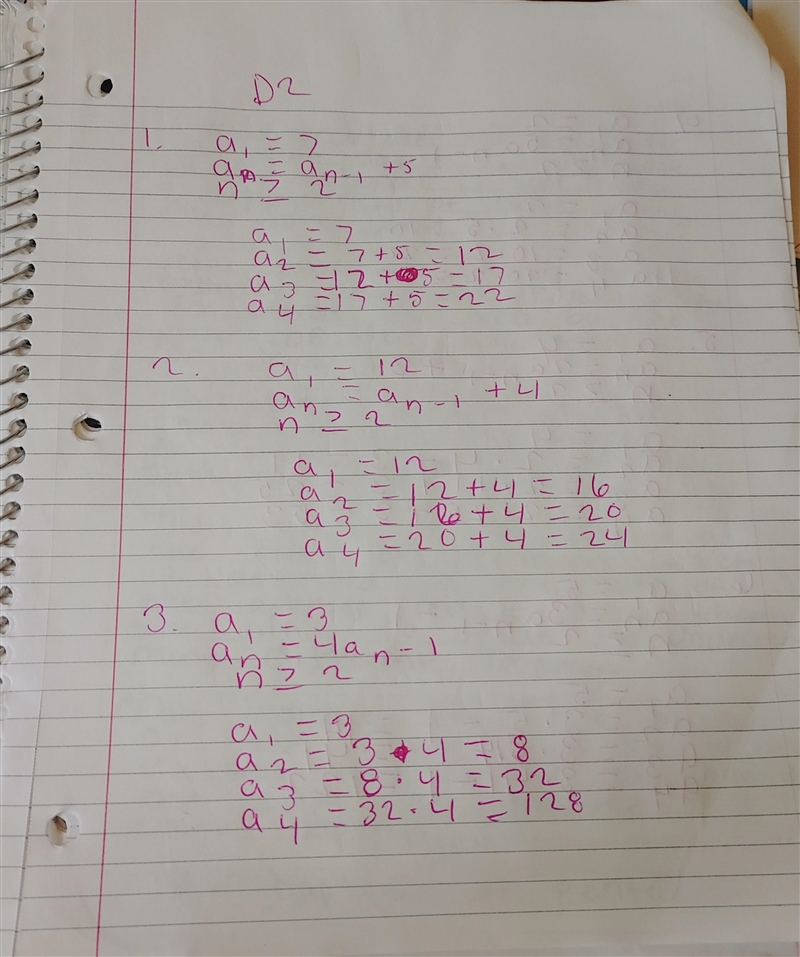 D2
1. a₁ = 7
aₙ = aₙ₋₁ + 5
n ≥ 2
a₁ = 7
a₂ = 7 + 5 = 12
a₃ = 12 + 5 = 17
a₄ = 17 + 5 = 22
2. a₁ = 12
aₙ = aₙ₋₁ + 4
n ≥ 2
a₁ = 12
a₂ = 12 + 4 = 16
a₃ = 16 + 4 = 20
a₄ = 20 + 4 = 24
3. a₁ = 3
aₙ = 4aₙ₋₁
n ≥ 2
a₁ = 3
a₂ = 3 · 4 = 8
a₃ = 8 · 4 = 32
a₄ = 32 · 4 = 128